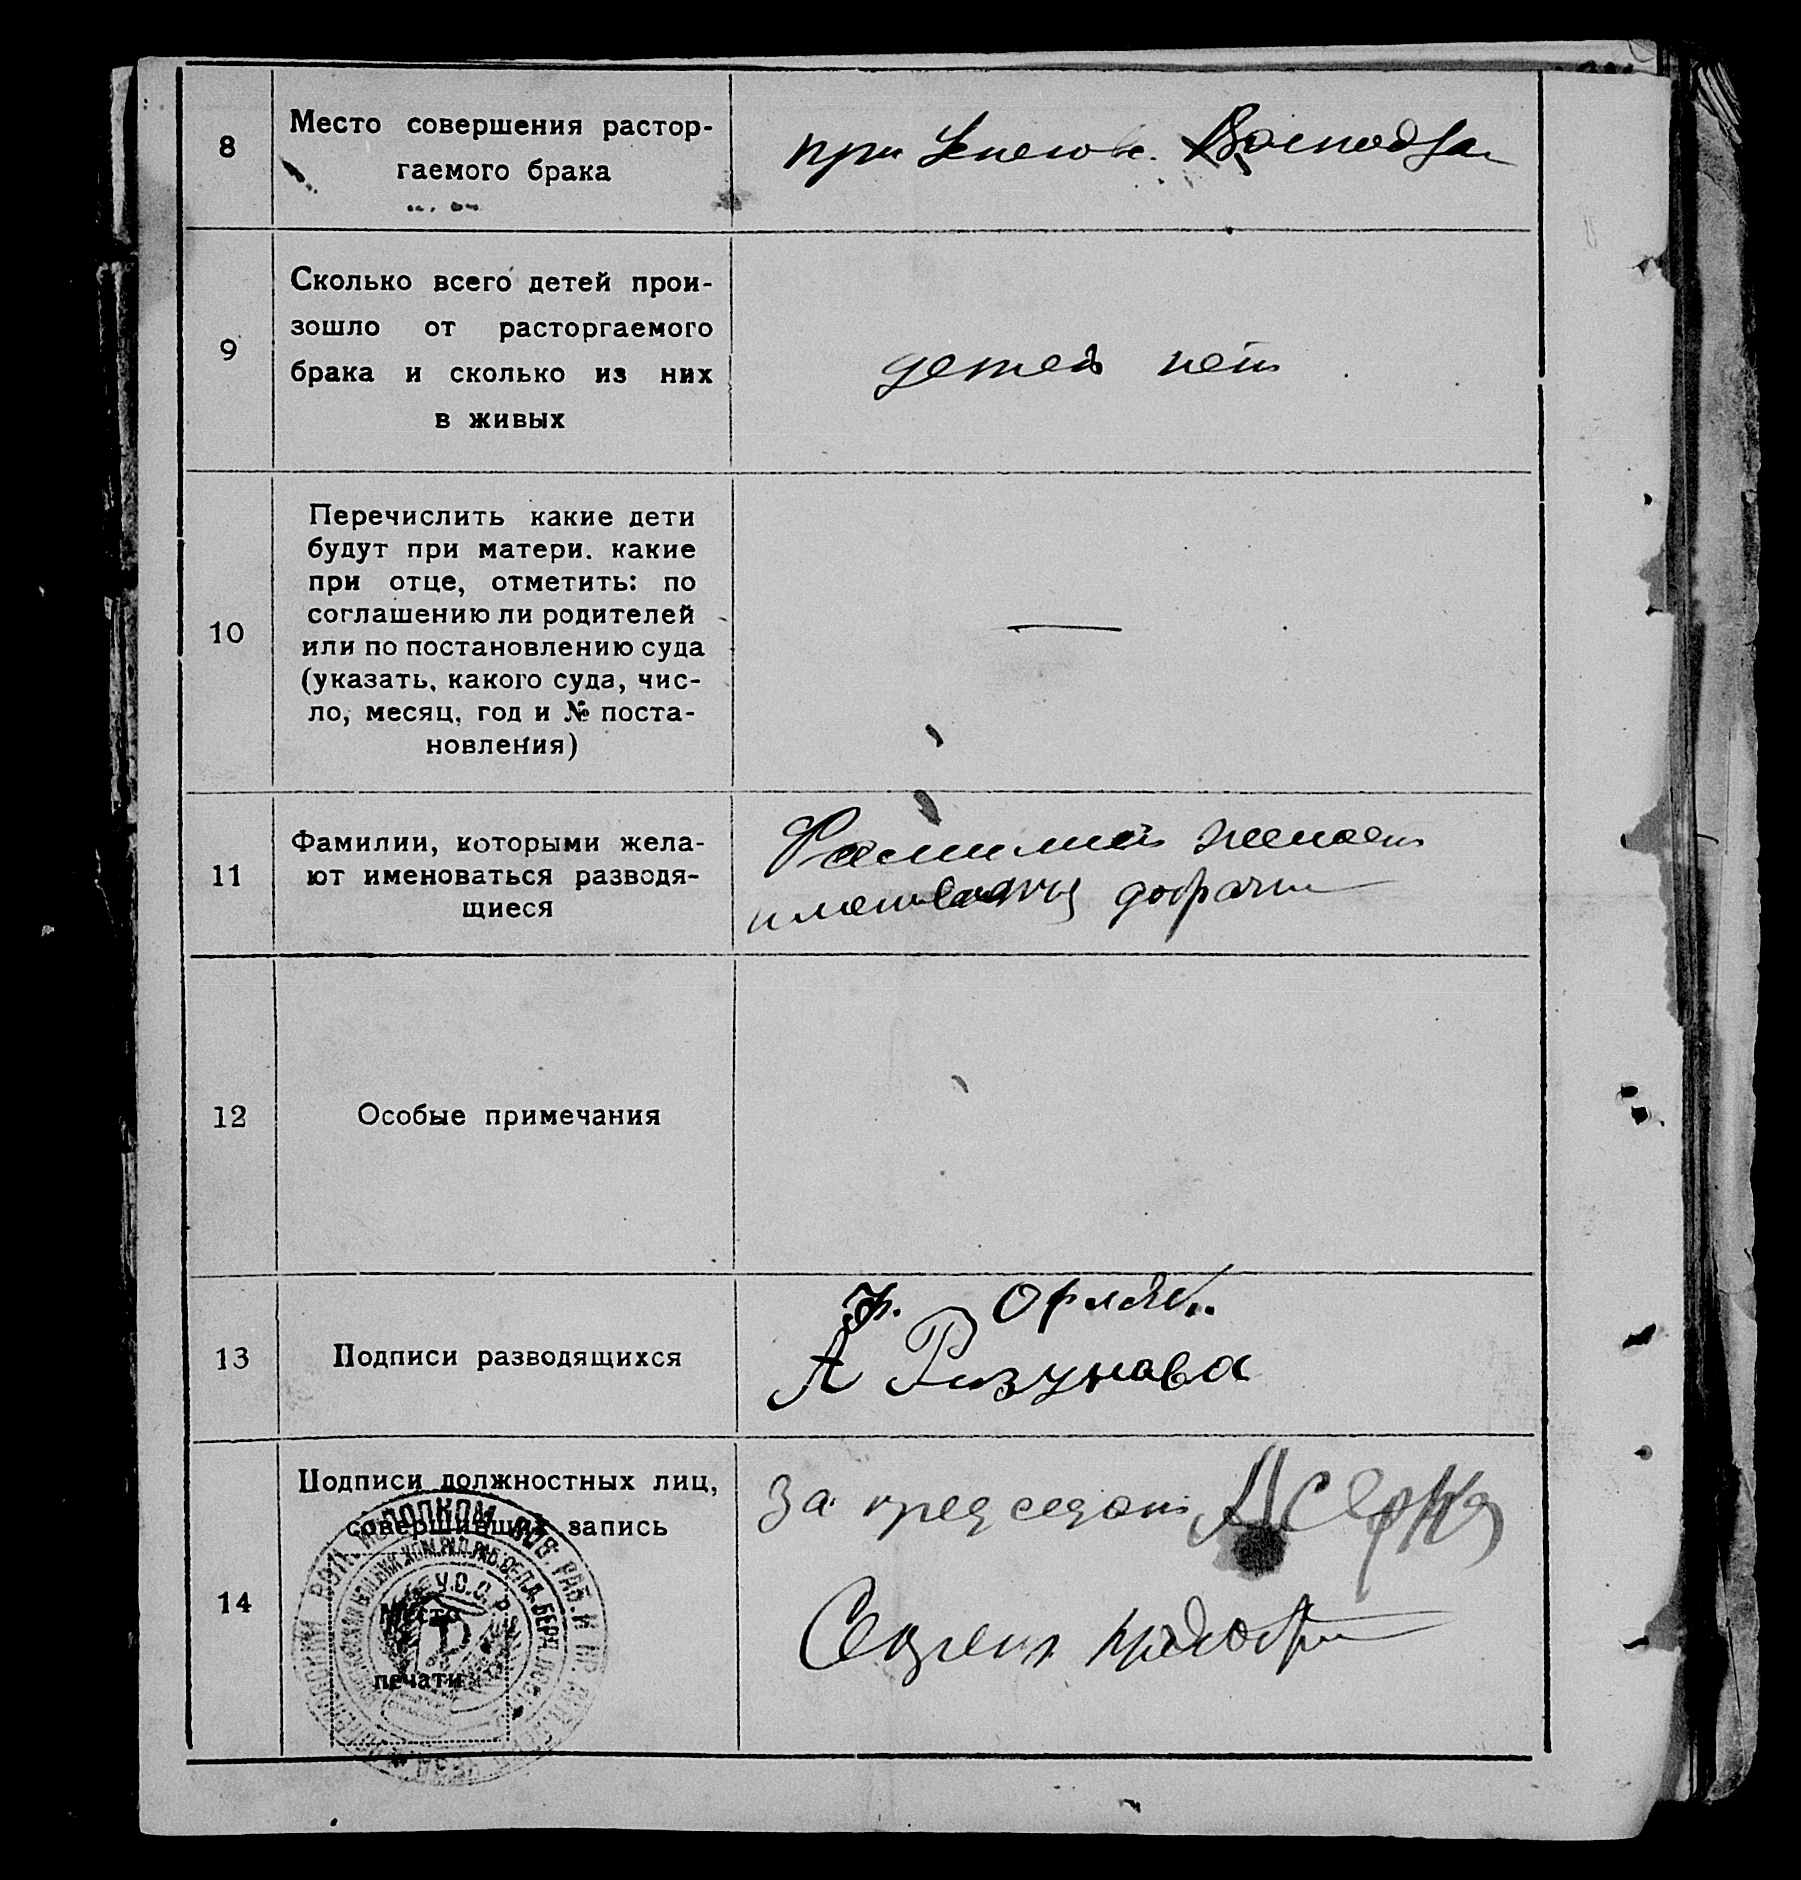 8
Место совершения растор-
гаемого брака
при
9
Сколько всего детей прои-
зошло от расторгаемого
брака и сколько из них
в живых
детей нет
10
Перечислить какие дети
будут при матери. какие
при отце, отметить: по
соглашению ли родителей
или по постановлению суда
(указать, какого суда, чис-
ло, месяц, год и № поста-
новления)
—
11
Фамилии, которыми жела-
ют именоваться разводя-
щиеся
Фамилией желает
именоваться добрачн
12
Особые примечания
13
Подписи разводящихся
А Ризунова
14
Подписи должностных лиц,
совершивших запись
Место
печати
У.С.С.Р.
За председат
Секрет